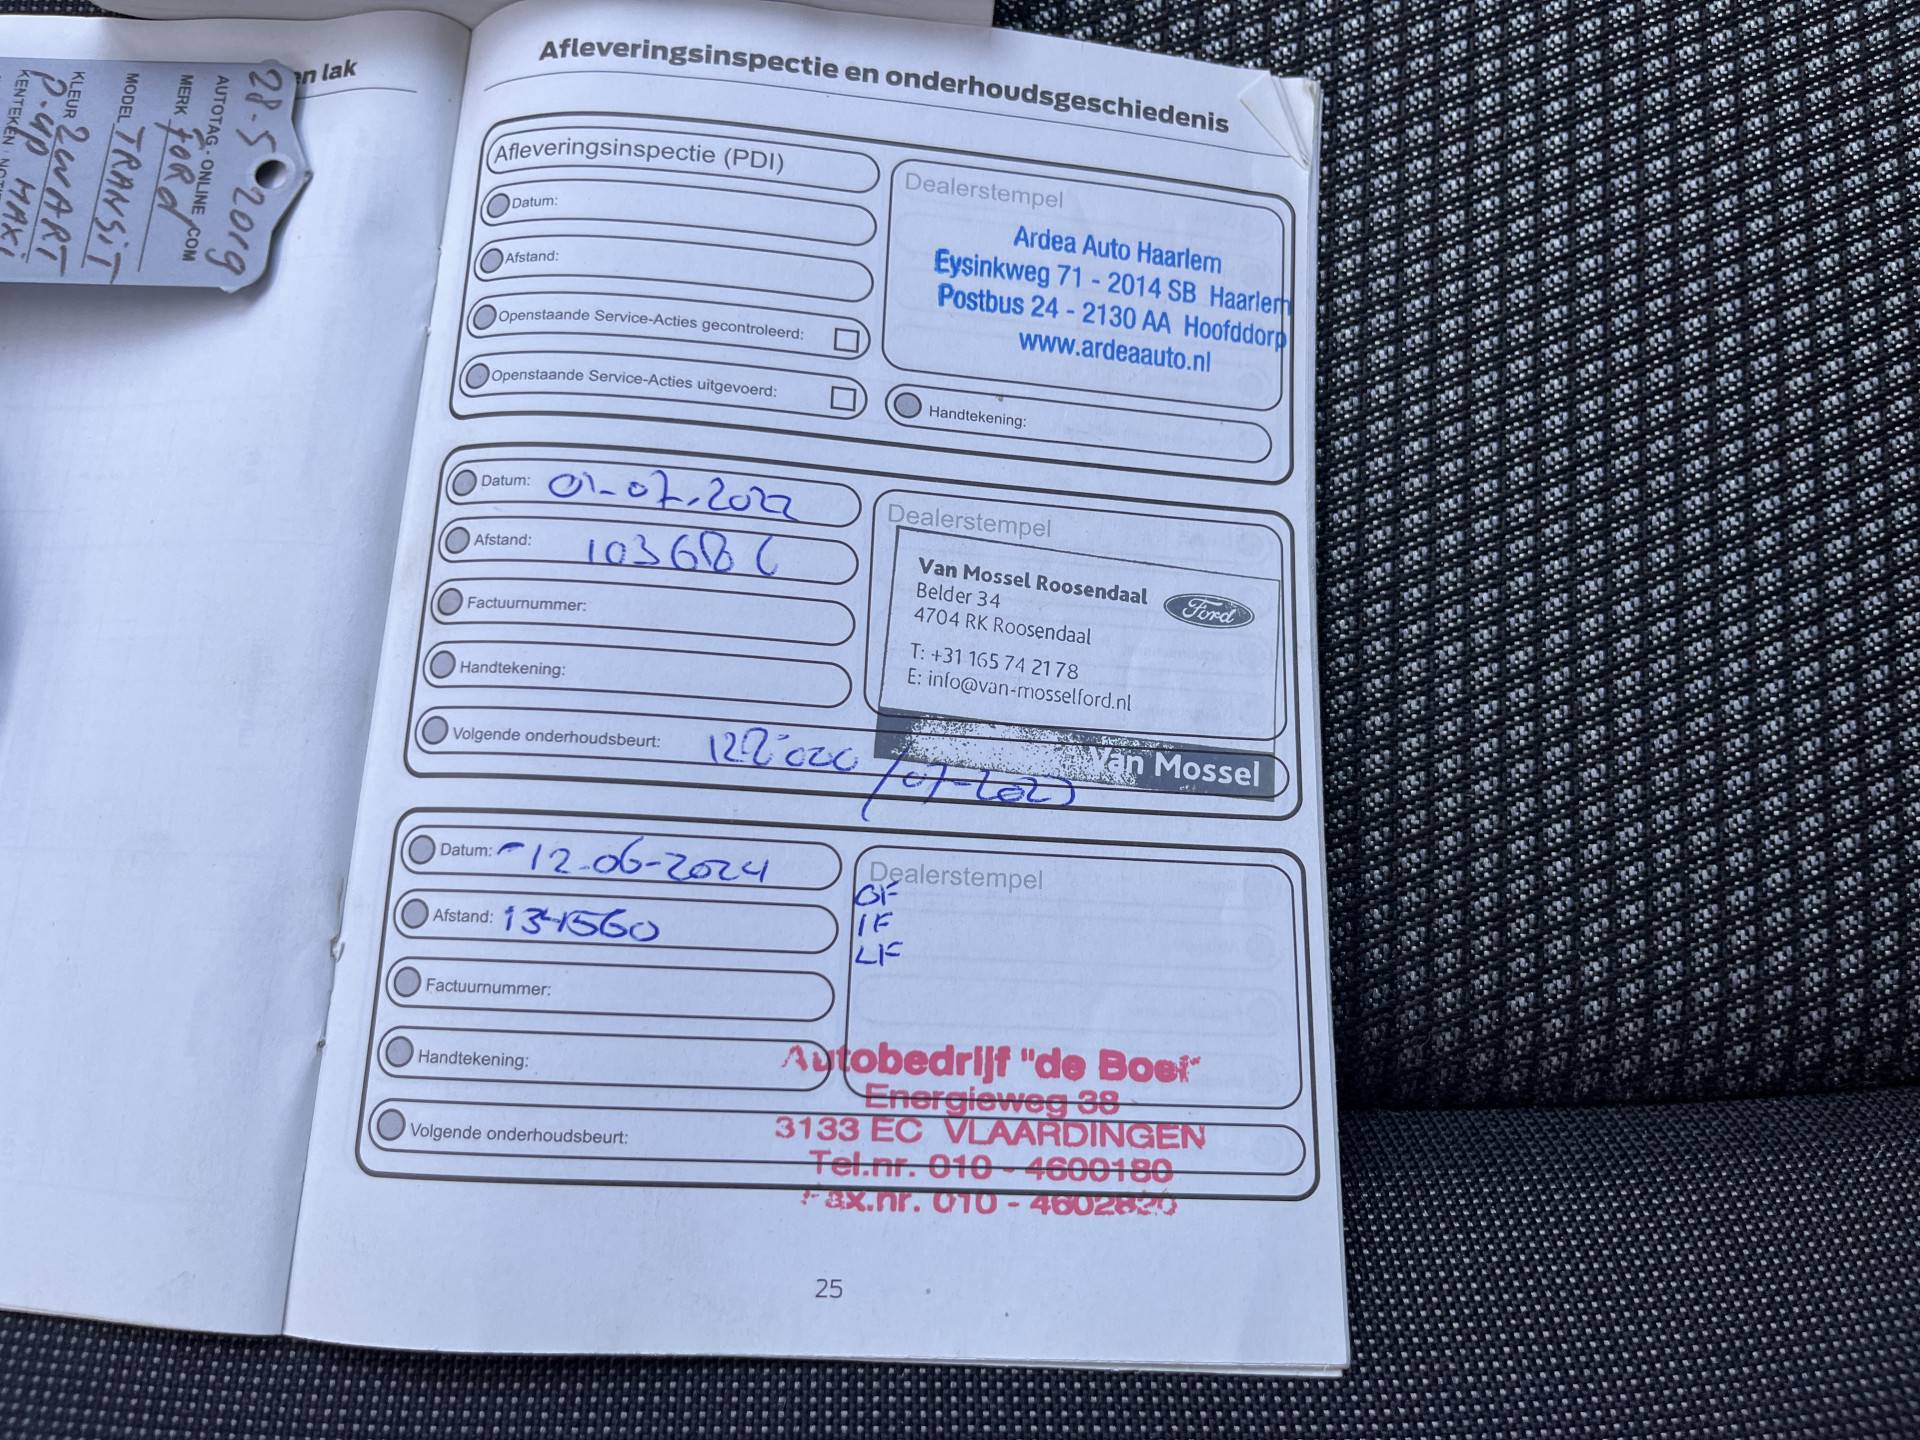 en lak
28-5 2019
AUTOTAG-ONLINE.COM
MERK FORd
MODEL TRANSiT
KLEUR ZWART
P-UP MAXi
KENTEKEN
Afleveringsinspectie en onderhoudsgeschiedenis
Afleveringsinspectie (PDI)
Datum:
Afstand:
Openstaande Service-Acties gecontroleerd:
Openstaande Service-Acties uitgevoerd:
Dealerstempel
Ardea Auto Haarlem
Eysinkweg 71 - 2014 SB Haarlem
Postbus 24 - 2130 AA Hoofddorp
www.ardeaauto.nl
Handtekening:
Datum: 01-07-2022
Afstand: 103686
Factuurnummer:
Handtekening:
Volgende onderhoudsbeurt: /07-2023
Dealerstempel
Van Mossel Roosendaal
Belder 34
4704 RK Roosendaal
T: +31 165 74 21 78
E: info@van-mosselford.nl
Ford
Van Mossel
Datum: -12-06-2024
Afstand: 134560
Factuurnummer:
Handtekening:
Volgende onderhoudsbeurt:
Dealerstempel
OF
IF
LF
Autobedrijf "de Boei"
Energieweg 38
3133 EC VLAARDINGEN
Tel.nr. 010 - 4600180
Fax.nr. 010 - 4602820
25